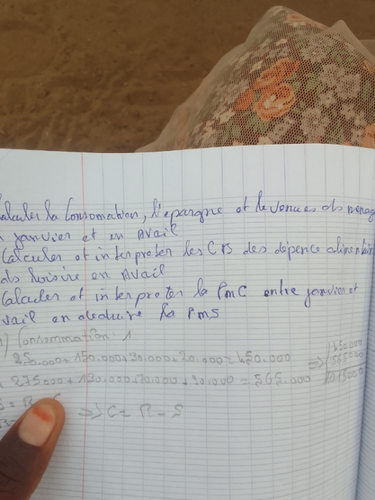 Calculer la Consomation, l'epargne et le venues des menag
janvier et en Avail
Calculer et interpreter les CB des depence alimentair
ds loisire en Avail
Calculer et interpreter la PmC entre janvier et
vail en deduire la PMS
) Consommation: 1
250.000+150.000+30.000+20.000=450.000 => 450.000
275000+190.000+70.000+30.000=565.000 565000
=> C = R - S